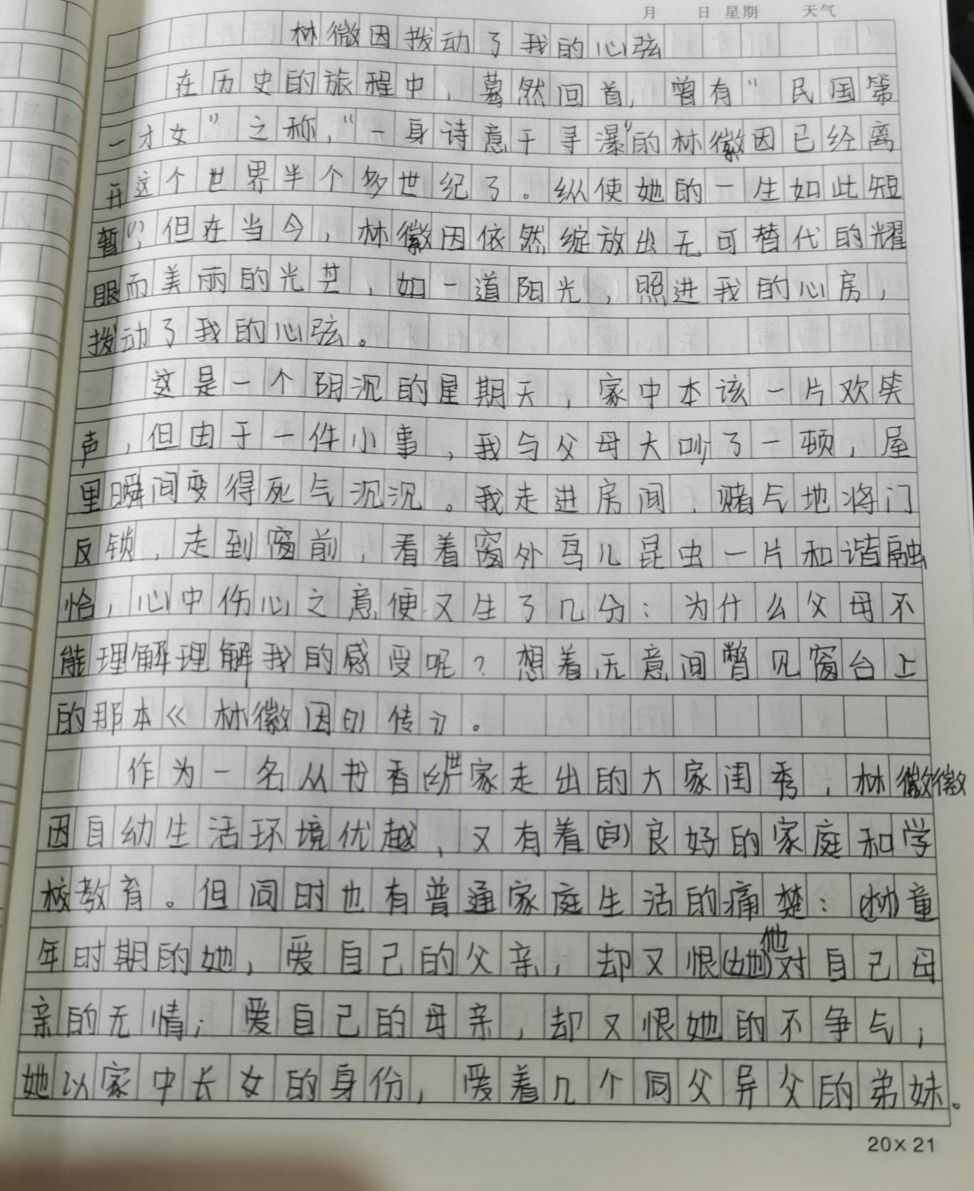 月 日 星期 天气
林微因拨动了我的心弦
在历史的旅程中，蓦然回首，曾有“民国第
一才女”之称，“一身诗意千寻瀑”的林徽因已经离
开这个世界半个多世纪了。纵使她的一生如此短
暂，但在当今，林徽因依然绽放出无可替代的耀
眼而美丽的光芒，如一道阳光，照进我的心房，
拨动了我的心弦。
这是一个阴沉的星期天，家中本该一片欢笑
声，但由于一件小事，我与父母大吵了一顿，屋
里瞬间变得死气沉沉。我走进房间，赌气地将门
反锁，走到窗前，看着窗外鸟儿昆虫一片和谐融
恰，心中伤心之意便又生了几分：为什么父母不
能理解理解我的感受呢？想着无意间瞥见窗台上
的那本《林徽因的传》。
作为一名从书香世家走出的大家闺秀，林徽
因自幼生活环境优越，又有着良好的家庭和学
校教育。但同时也有普通家庭生活的痛楚：童
年时期的她，爱自己的父亲，却又恨他对自己母
亲的无情；爱自己的母亲，却又恨她的不争气；
她以家中长女的身份，爱着几个同父异父的弟妹。
20×21